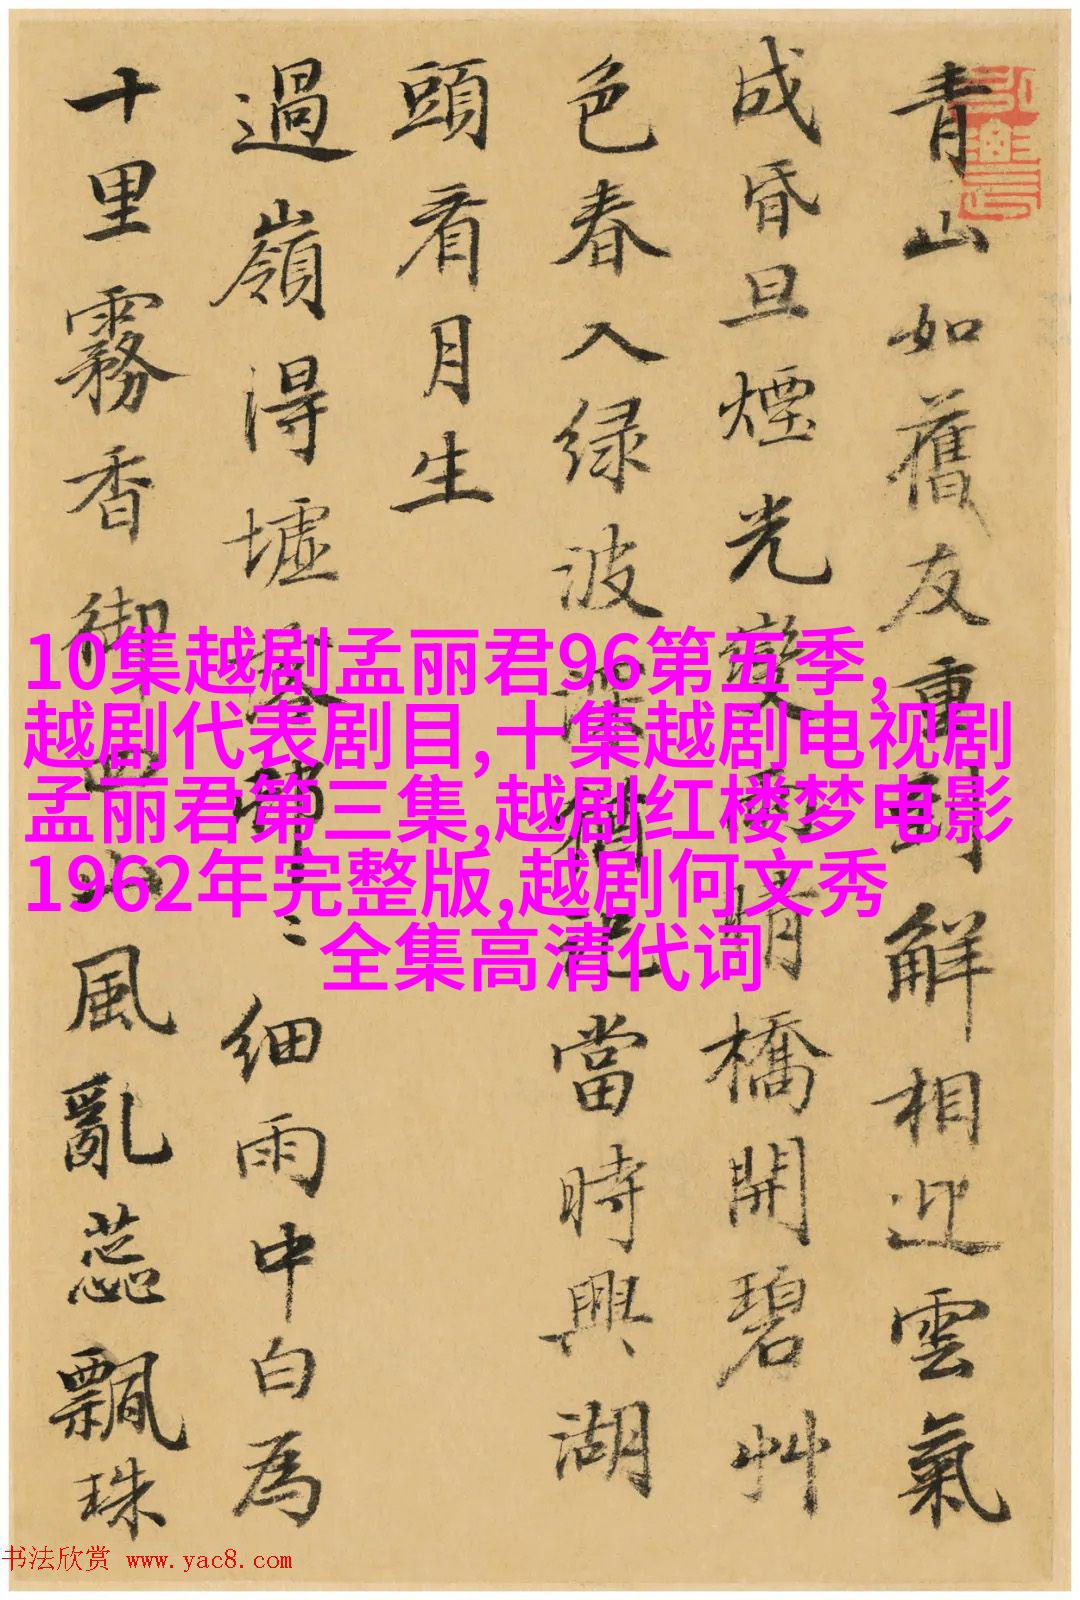 青山如舊友重到解相迎雲氣
成昏旦煙光變雨情橋開碧艸
色春入绿波深猶記當時興湖
頭看月生
過嶺得墟落細雨中白為
十里霧香御風亂蕊飄珠
10集越剧孟丽君96第五季,
越剧代表剧目,十集越剧电视剧
孟丽君第三集,越剧红楼梦电影
1962年完整版,越剧何文秀
全集高清代词
书法欣赏 www.yac8.com